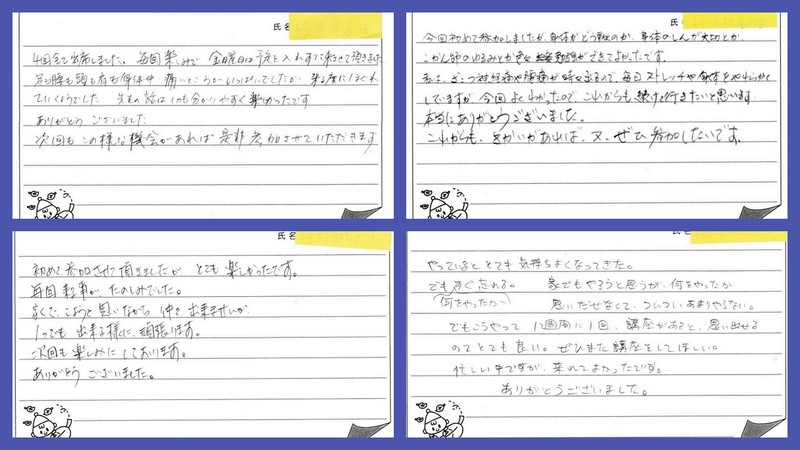 氏名
4回全て出席しました。毎回楽しみで金曜日は予定を入れずに来させて頂きました
足も腰も頭も肩も身体中痛いところがいっぱいでしたが来る度にほぐれ
ていくようでした 先生の話はいつも分かりやすく楽しかったです
ありがとうございました
次回もこの様な機会があれば是非参加させていただきます
氏
今回初めて参加しましたが、身体がどう動くのか、身体のしんが大切とか、
こかん節のゆるみとか
私は、ざこつ神経痛や腰痛が時々出るので、毎日ストレッチや身体をやわらかく
していますが、今回よくわかったので、これからも続けて行きたいと思います
本当にありがとうございました。
これからも、きかいがあれば、又、ぜひ参加したいです。
氏名
初めて参加させて頂きましたが、とても楽しかったです。
毎回来る事が、たのしみでした。
家で、こうと思いながら 仲々出来ませんが、
1つでも出来る様に、頑張ります。
次回も楽しみにしております。
ありがとうございました。
氏名
やっているととても気持ちよくなってきた。
でもすぐ忘れる。 家でもやろうと思うが、何をやったか
(何をやったか) 思いだせなくて、ついついあまりやらない。
でもこうやって1週間に1回、講座があると、思い出せる
のでとても良い。ぜひまた講座をしてほしい。
忙しい中ですが、来れてよかったです。
ありがとうございました。